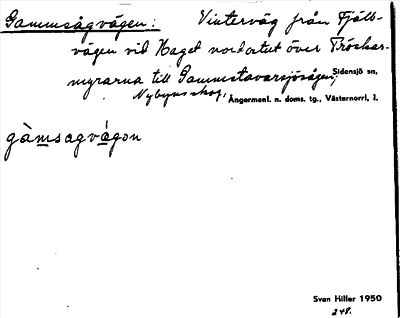 Gammsågvägen: Vinterväg från Fjäll-
vägen vid Haget nordostut över Tröskar-
myrarna till Gammstavarsjösågen,
Sidensjö sn,
Nybynsskog,
Ångermanl. n. doms. tg., Västernorrl. l.
gàmsagvágon
Sven Hiller 1950
248.